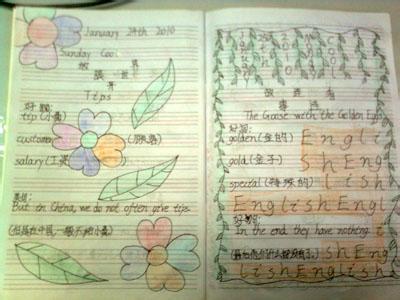 January 24th 2010
Sunday Cool
界
世
Tips
好词:
tip (小费)
customer (顾客)
salary (工资)
美句:
But in China, we do not often give tips.
(但是在中国,一般不给小费)
The Goose with the Golden Eggs
好词:
golden (金的) Engli
gold (金子) sh Engl
special (特殊的) ish
English
好句:
In the end they have nothing
(最后他们什么都没有了) sh Engl
lish English